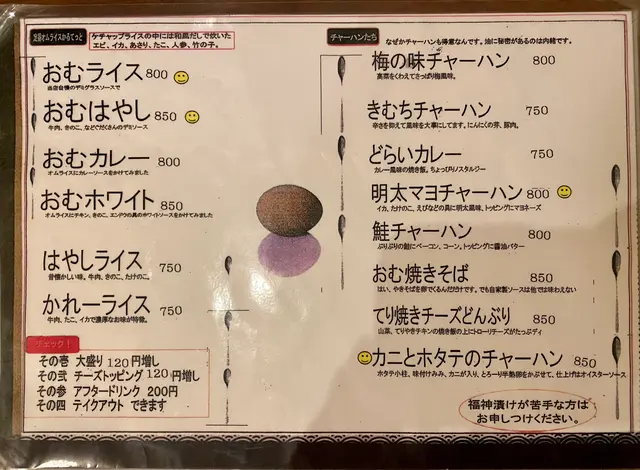 定番オムライスかるてっと
ケチャップライスの中には和風だしで炊いた
エビ、イカ、あさり、たこ、人参、竹の子。
おむライス 800
当店自慢のデミグラスソースで
おむはやし 850
牛肉、きのこ、などぐだくさんのデミソース
おむカレー 800
オムライスにカレーソースをかけてみました
おむホワイト 850
オムライスにチキン、きのこ、エンドウの具のホワイトソースをかけてみました
はやしライス 750
昔懐かしい味。牛肉、きのこ、たけのこ。
かれーライス 750
牛肉、たこ、イカで濃厚なお味が特徴。
チェック!
その壱 大盛り 120円増し
その弐 チーズトッピング 120円増し
その参 アフタードリンク 200円
その四 テイクアウト できます
チャーハンたち
なぜかチャーハンも得意なんです。油に秘密があるのは内緒です。
梅の味チャーハン 800
高菜をくわえてさっぱり梅風味。
きむちチャーハン 750
辛さを抑えて風味を大事にしてます。にんにくの芽、豚肉。
どらいカレー 750
カレー風味の焼き飯。ちょっぴりノスタルジー
明太マヨチャーハン 800
イカ、たけのこ、えびなどの具に明太風味、トッピングにマヨネーズ
鮭チャーハン 800
ぷりぷりの鮭にベーコン、コーン。トッピングに醤油バター
おむ焼きそば 850
はい、やきそばを卵でくるんだだけです。でも自家製ソースは他では味わえない
てり焼チーズどんぶり 850
山菜、てりやきチキンの焼き飯の上にトローリチーズがたっぷディ
カニとホタテのチャーハン 850
ホタテ小柱、味付けみみ、カニが入り、とろーり半熟卵をかぶせて、仕上げはオイスターソース
福神漬けが苦手な方は
お申しつけください。